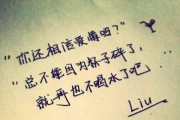 “你还相信爱情吗？”
“总不能因为杯子碎了，
就再也不喝水了吧
Liu